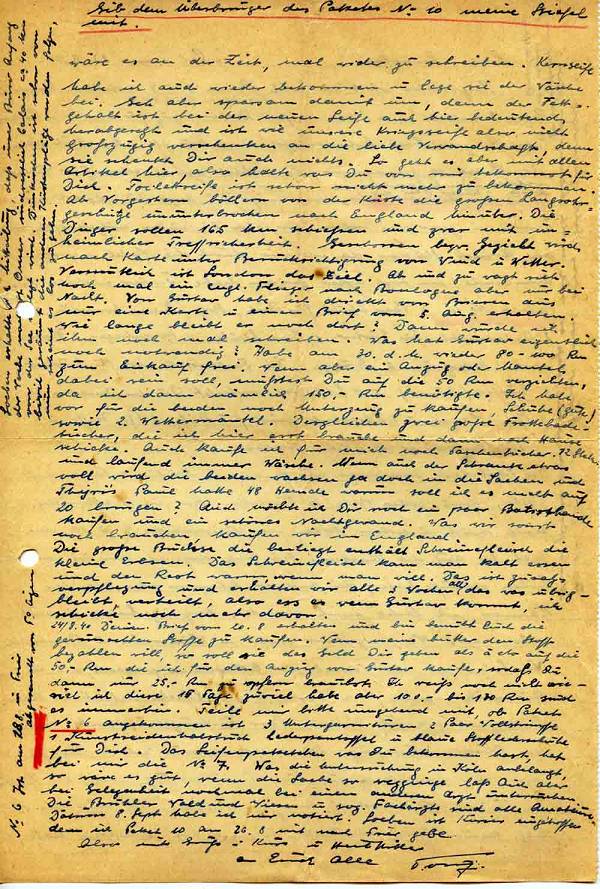 Gib dem Überbringer des Paketes No 10 meine Stiefel
mit.
wäre es an der Zeit, mal wieder zu schreiben. Kernseife
habe ich auch wieder bekommen u lege sie der Wäsche
bei. Geh aber sparsam damit um, denn der Fett-
gehalt ist bei der neuen Seife auch hier bedeutend
herabgesetzt und ist wie unsere Kriegsseife also nicht
großzügig verschenken an die liebe Verwandschaft, denn
sie schenkt Dir auch nichts. So geht es aber mit allen
Artikel hier, also halte was Du von mir bekommst für
Dich. Toilettseife ist schon nicht mehr zu bekommen.
Ab Vorgestern büllern von der Küste die großen Langrohr-
geschütze ununterbrochen nach England hinüber. Die
Dinger sollen 165 km schiessen und zwar mit un-
heimlicher Treffsicherheit. Gemessen bzw. Gezielt wird
nach Karte unter Berücksichtigung von Wind u Wetter.
Vermutlich ist London das Ziel. Ab und zu wagt sich
noch mal ein engl. Flieger nach Boulogne aber nur bei
Nacht. Von Gustav habe ich direkt von Brienen aus
nur eine Karte u einen Brief vom 5. Aug. erhalten.
Wie lange bleibt er noch dort? Dann würde ich
ihm noch mal schreiben. Was hat Gustav eigentlich
noch notwendig? Habe am 30. d. M. wieder 80-100 Rm
zum Einkauf frei. Wenn aber ein Anzug oder Mantel
dabei sein soll, müßtest Du auf die 50 Rm verzichten,
da ich dann nämlich 150,- Rm benötigte. Ich habe
vor für die beiden noch Unterzeug zu kaufen, Schuhe (gute)
sowie 2 Wettermäntel. Dergleichen zwei große Frottebade-
tücher, die ich hier erst brauche und dann nach Hause
schicke. Auch kaufe ich für mich noch Taschentücher
und laufend immer Wäsche. Wenn auch der Schrank etwas
voll wird die beiden wachsen ja doch in die Sachen und
Paul hatte 48 Hemde warum soll ich es nicht auf
20 bringen? Auch möchte ich Dir noch ein paar
kaufen und ein schönes Nachtgewand. Was wir sonst
noch brauchen, kaufen wir in England.
Die große Büchse die beiliegt enthält Schweinefleisch die
kleine Erbsen. Das Schweinefleisch kann man kalt essen
und den Rest warm, wenn man will. Das ist zusatz-
verpflegung und erhalten wir alle 3 Wochen (das was übrig
bleibt, verteilt, also ess es wenn Gustav kommt, ich
schicke noch mehr davon.
24/8.40 Deinen Brief vom 20. 8 erhalten und bin bemüht Euch die
gewünschten Stoffe zu kaufen. Wenn meine Mutter den Stoff
bezahlen will, so soll sie das Geld Dir geben als Ersatz auf die
50,- Rm die ich für den Anzug von Gustav kaufe, sodaß Du
dann nur 25,- Rm zu opfern brauchst. Ich weiß noch nicht wie-
viel ich diese 10 Tage zuviel habe aber 100.- bis 130 Rm sind
es immerhin. Teile mir bitte umgehend mit ob Paket
No 6 angekommen ist 3 Untergarnituren 2 Paar Wollstrümpfe
1 Kunstseidenhalstuch Lederpantoffel u blaue Stofflederschuhe
für Dich. Das Seifenpaketchen was Du bekommen hast, hat
bei mir die No 7. Was die Untersuchung in Köln anbelangt,
so wäre es gut, wenn die Sache so lass Dich aber
bei Gelegenheit nochmal bei einem andern Arzt untersuchen.
Die Brühler Wald und Wiesen u sog. Fachärzte sind alle
Datum 8. Sept habe ich mir notiert. Soeben ist Kurier eingetroffen
dem ich Paket 10 am 26. 8 mit nach Trier gebe.
Also mit Gruß u Kuss u Heil Hitler
an Euch alle
No 6 Ist am 18.8. in Trier